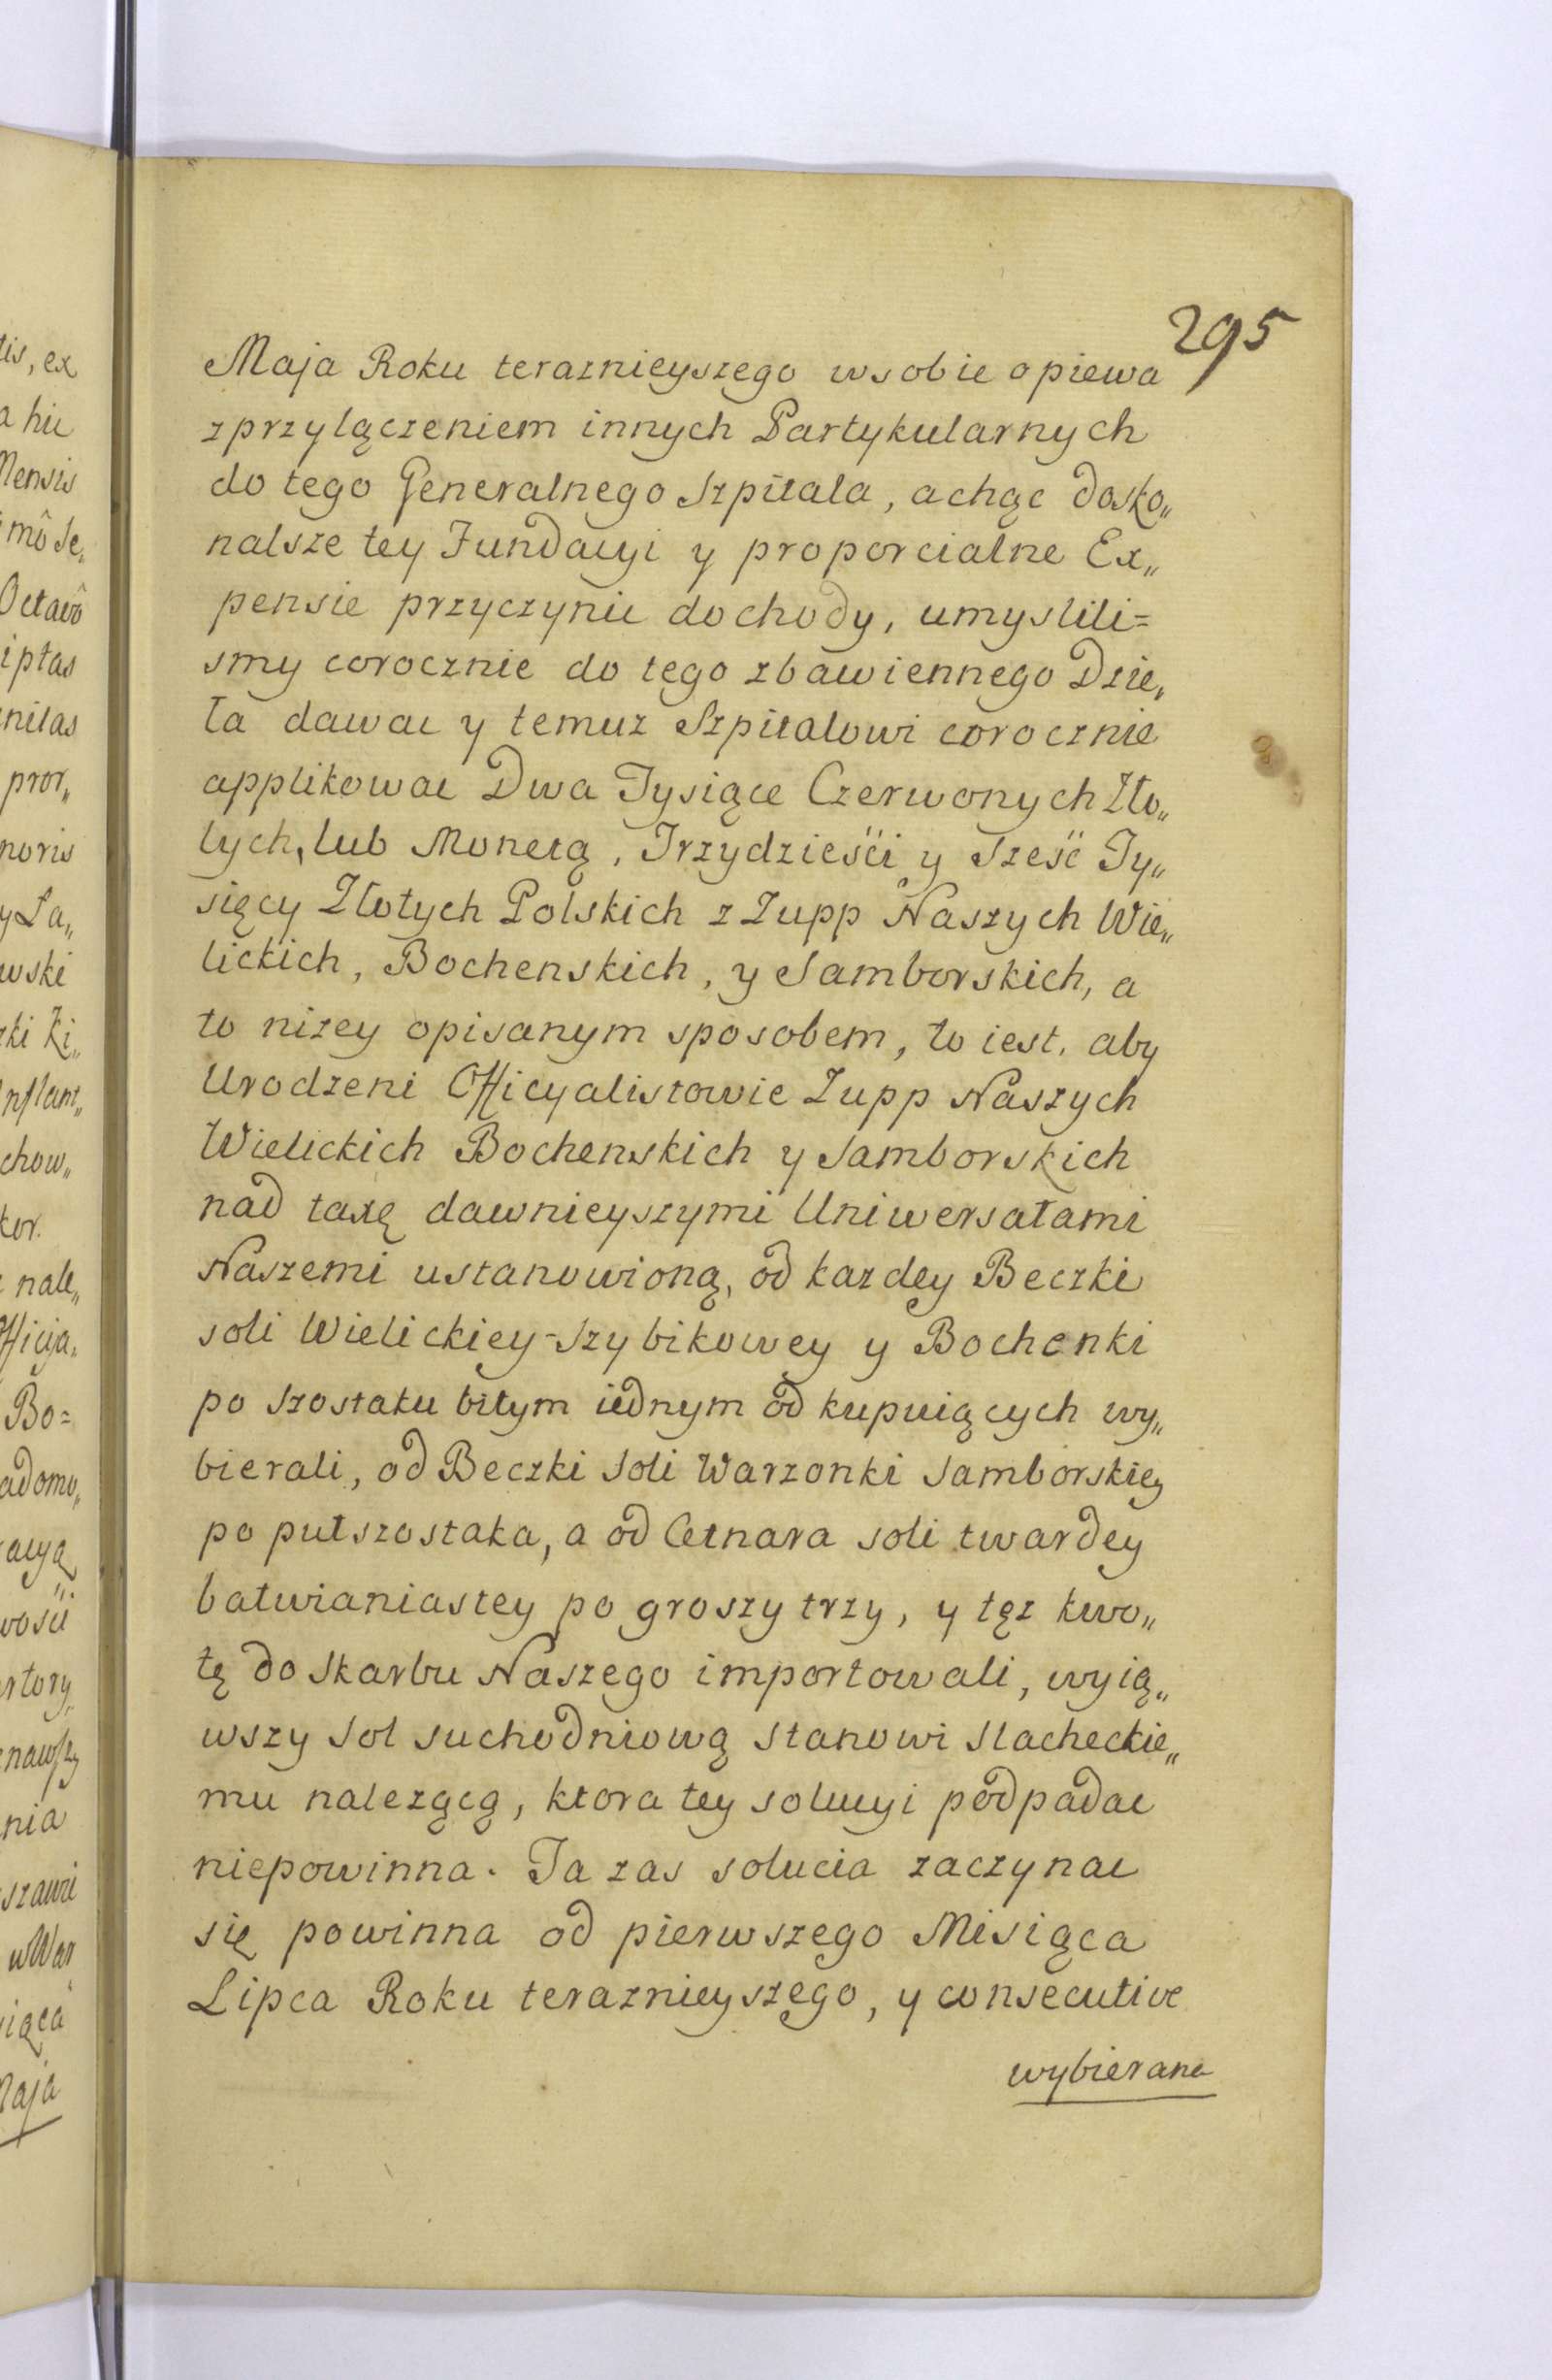 295
Maja Roku teraznieyszego wsobie opiewa
zprzyłączeniem innych Partykularnych
do tego Generalnego Szpitala, achąc dosko„
nalsze tey Fundacyi y proporcialne Ex„
pensie przyczynic dochody, umyslili=
smy corocznie do tego zbawiennego Dzie„
ła dawac y temuz Szpitalowi corocznie
applikowac Dwa Tysiące Czerwonych Zło„
tych, lub Monetą, Trzydzieści y Sześć Ty„
sięcy Złotych Polskich z Zupp Naszych Wie„
lickich, Bochenskich, y Samborskich, a
to nizey opisanym sposobem, to iest, aby
Urodzeni Officyalistowie Zupp Naszych
Wielickich Bochenskich y Samborskich
nad taxę dawnieyszymi Uniwersałami
Naszemi ustanowioną, od kazdey Beczki
soli Wielickiey-Szybikowey y Bochenki
po szostaku bitym iednym od kupuiących wy„
bierali, od Beczki Soli Warzonki Samborskiey
po pułszostaka, a od Cetnara soli twardey
bałwianiastey po groszy trzy, y tęz kwo„
tę do Skarbu Naszego importowali, wyią„
wszy Sol suchodniową Stanowi Slacheckie„
mu nalezącą, ktora tey solucyi podpadac
niepowinna. Ta zas solucia zaczynac
się powinna od pierwszego Misiąca
Lipca Roku teraznieyszego, y consecutive
wybierana
tis, ex
a hic
Mensis
Octavô
iptas
nitas
pror„
noris
y La„
wski
zki Ki„
nflant„
chow„
tor.
nale„
fficja„
Bo=
adomo„
acyą
wości
rtory„
nawszy
nia
szawi
wWar
iąca
Maja